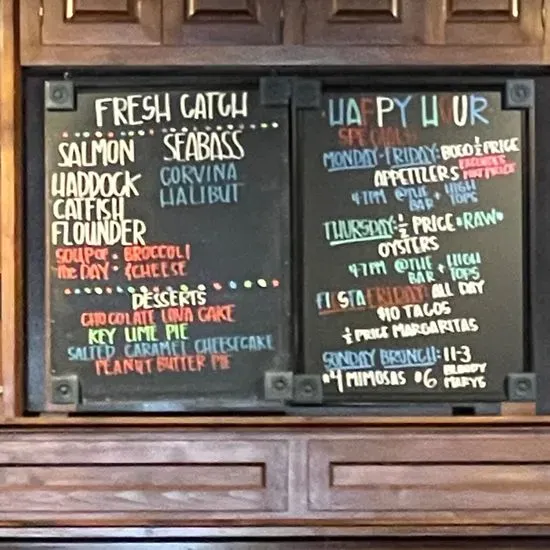 FRESH CATCH
SALMON
HADDOCK
CATFISH
FLOUNDER
SEABASS
CORVINA
HALIBUT
SOUP OF • BROCCOLI
THE DAY • &CHEESE
DESSERTS
CHOCOLATE LAVA CAKE
KEY LIME PIE
SALTED CARAMEL CHEESECAKE
PEANUT BUTTER PIE
HAPPY HOUR
SPECIALS
MONDAY-FRIDAY: BOGO ½ PRICE
APPETIZERS
4-7PM @THE BAR + HIGH TOPS
THURSDAY: ½ PRICE •RAW•
OYSTERS
4-7PM @THE BAR + HIGH TOPS
FIESTA FRIDAY: ALL DAY
$10 TACOS
½ PRICE MARGARITAS
SUNDAY BRUNCH: 11-3
$4 MIMOSAS $6 BLOODY MARYS